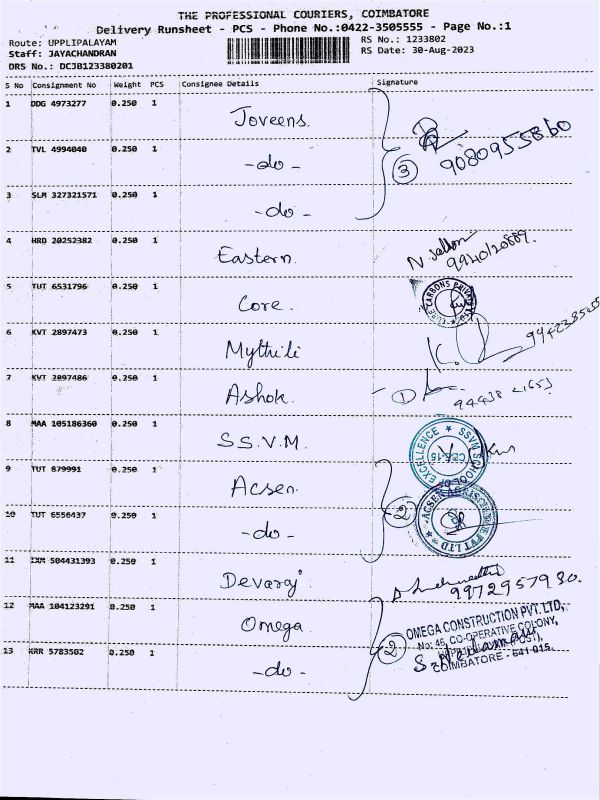 THE PROFESSIONAL COURIERS, COIMBATORE
Delivery Runsheet - PCS - Phone No.:0422-3505555 - Page No.:1
Route: UPPLIPALAYAM RS No.: 1233802
Staff: JAYACHANDRAN RS Date: 30-Aug-2023
DRS No.: DCJB123380201
S No Consignment No Weight PCS Consignee Details Signature
1 DDG 4973277 0.250 1 Joveens.
2 TVL 4994040 0.250 1 -do- 3 9080955860
3 SLM 327321571 0.250 1 -do-
4 HRD 20252382 0.250 1 Eastern. 9940120889.
5 TUT 6531796 0.250 1 Core.
6 KVT 2897473 0.250 1 Mythili
7 KVT 2897486 0.250 1 Ashok. 1
8 MAA 105186360 0.250 1 S.S.V.M. EXCELLENCE SSVM SCHOOL
9 TUT 879991 0.250 1 Acsen.
10 TUT 6556437 0.250 1 -do- 2 PVT LTD
11 IXM 504431393 0.250 1 Devaraj. 9972957930.
12 MAA 104123291 0.250 1 Omega OMEGA CONSTRUCTION PVT.LTD,
No: 46, CO-OPERATIVE COLONY,
13 KRR 5783502 0.250 1 -do- 2 COIMBATORE - 641 015.